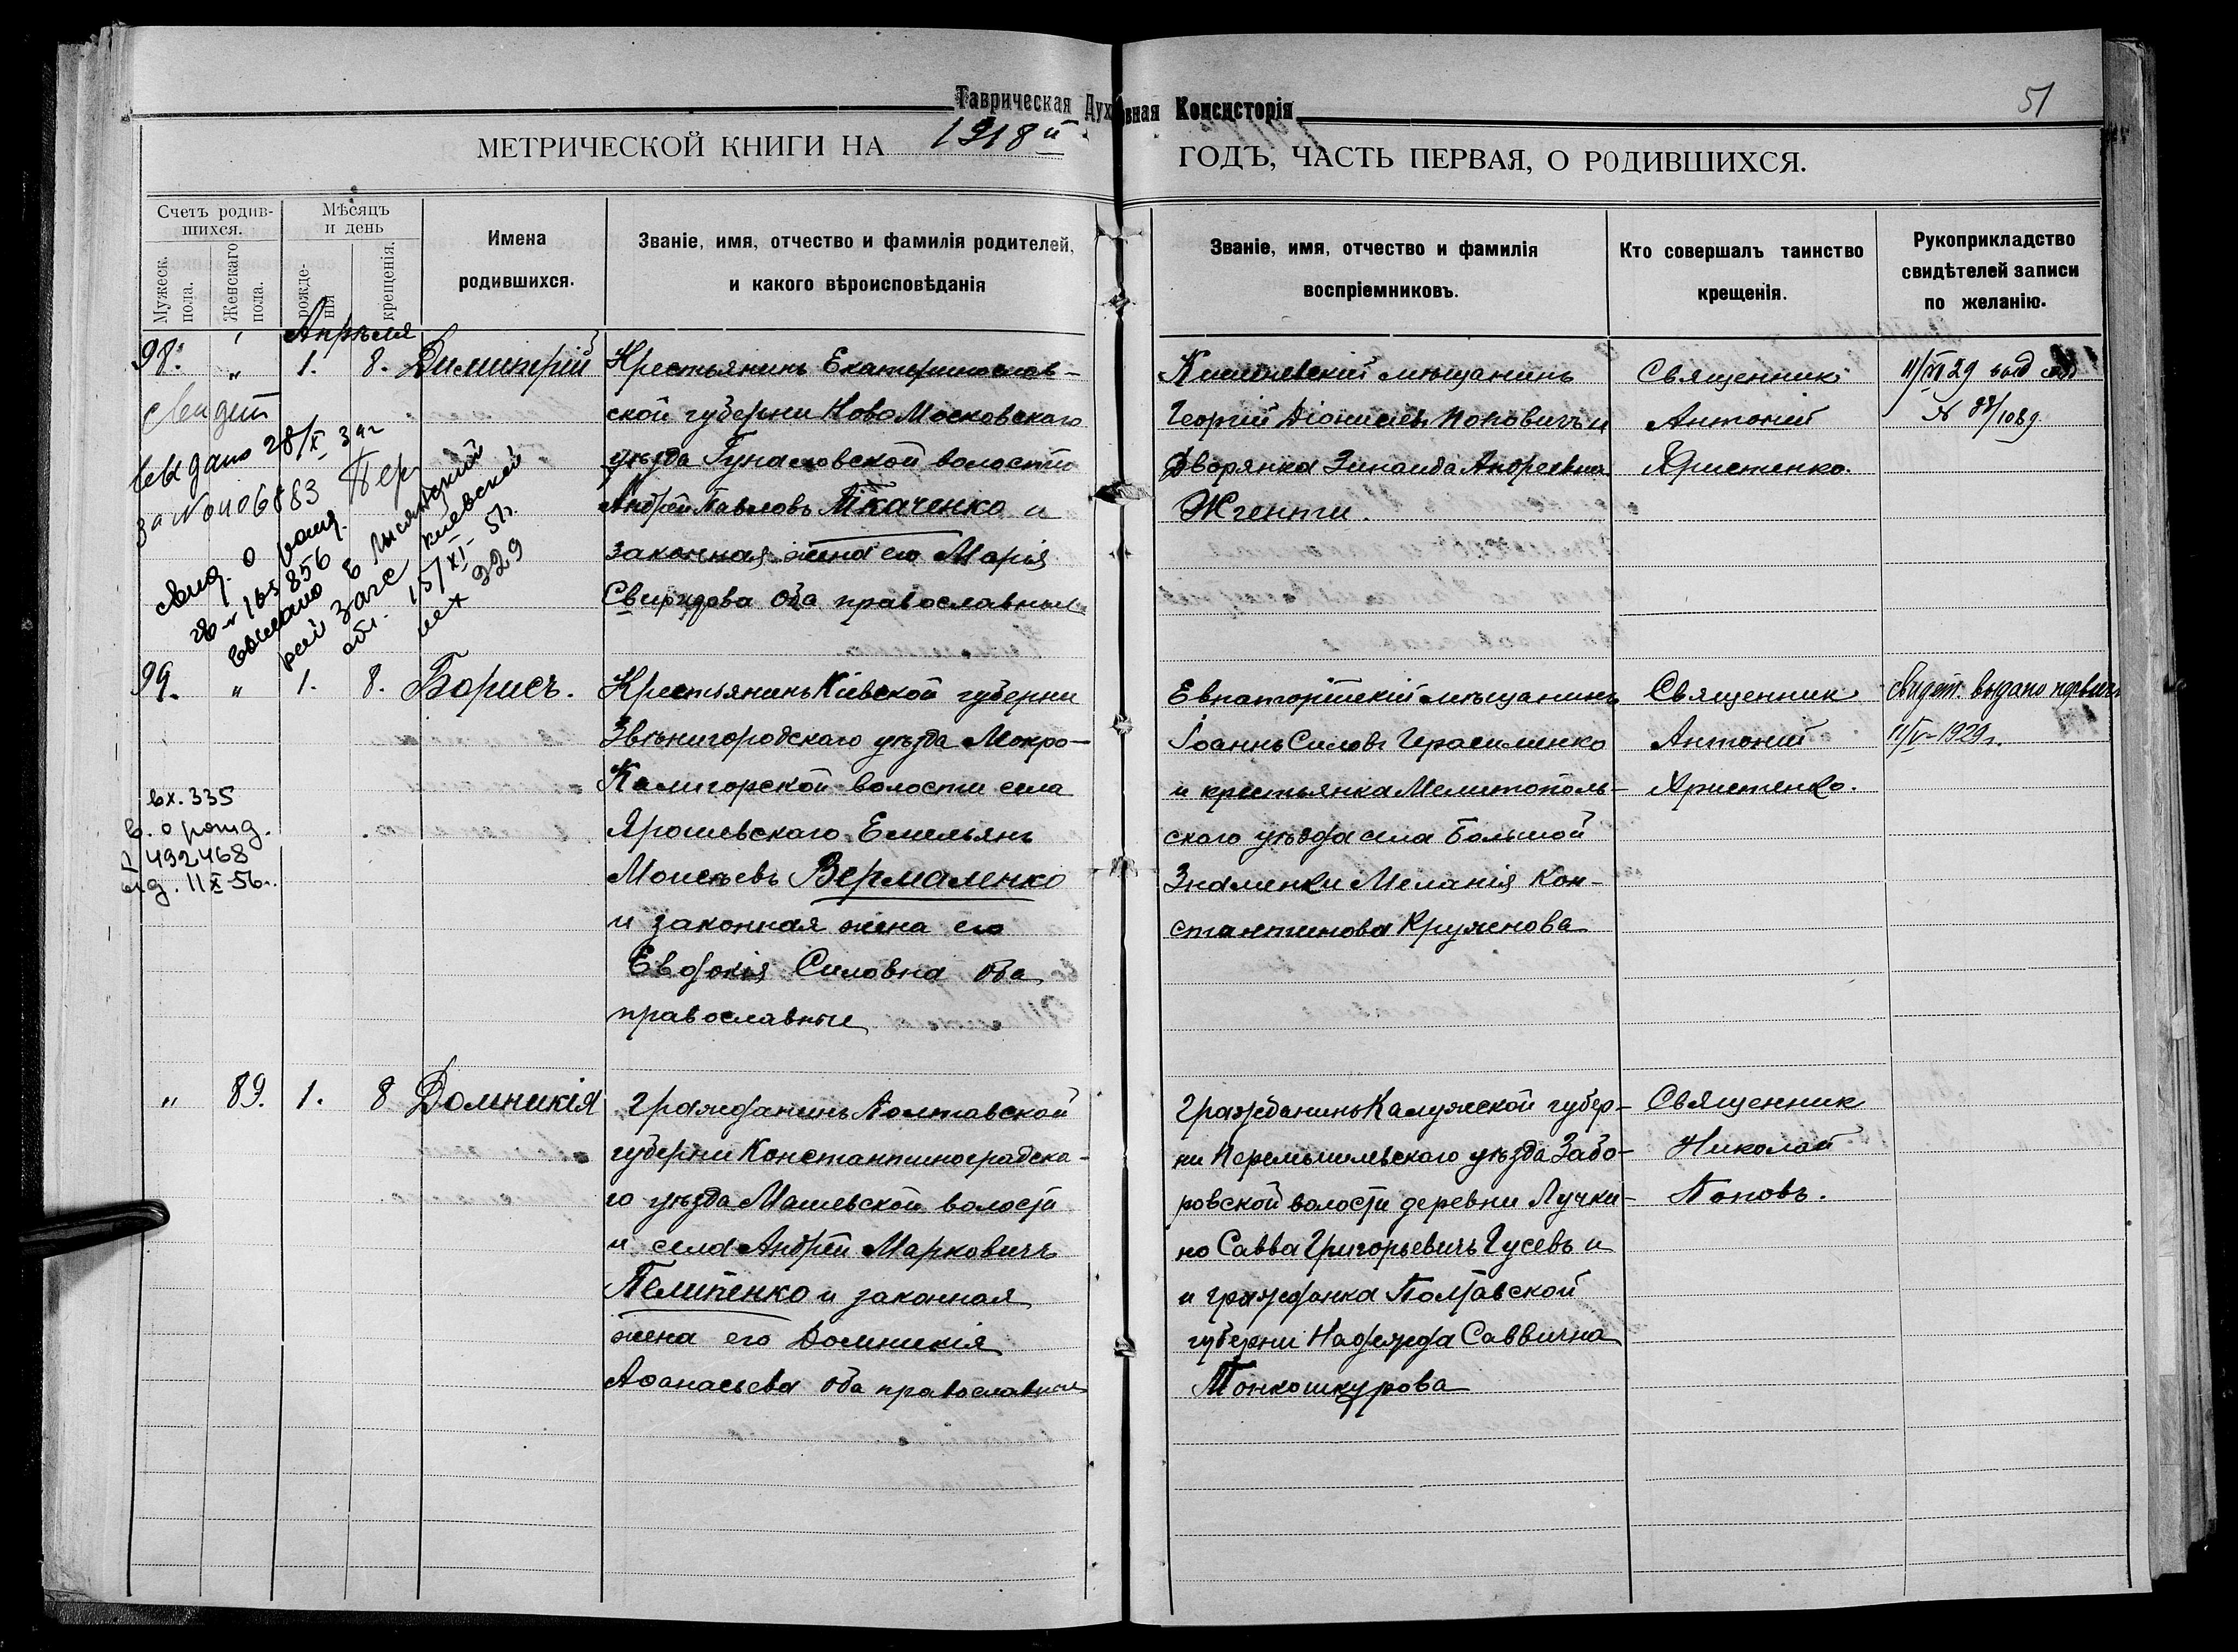 Таврическая Духовная Консисторія
51
МЕТРИЧЕСКОЙ КНИГИ НА 1918й ГОДЪ, ЧАСТЬ ПЕРВАЯ, О РОДИВШИХСЯ.
Счетъ родив-
шихся.
Мужеск. пола.
Женскаго пола.
Мѣсяцъ
и день
рожде-
нія
крещенія.
Имена
родившихся.
Званіе, имя, отчество и фамилія родителей,
и какого вѣроисповѣданія
Званіе, имя, отчество и фамилія
воспріемниковъ.
Кто совершалъ таинство
крещенія.
Рукоприкладство
свидѣтелей записи
по желанію.
Апрѣля
98. " 1. 8. Димитрій
Крестьянинъ Екатеринослав-
ской губерни Ново Московскаго
уѣзда волости
Андрей Павловъ Ткаченко и
законная жена его Марія
Свиридова оба православные
Кишиневскій мѣщанинъ
Георгій Діонисіевъ Поповичъ и
Дворянка Зинаида Андреевна
Жгенти.
Священникъ
Антоній
Христенко.
11/VII 29 выд
№ 88/1089
свидет
выдано 28/X 34г
за №
свид. о рожд.
выслано в Лисянский
рай ЗАГС Киевской
обл. 15/XI-51г.
исх 229
99. " 1. 8. Борисъ.
Крестьянинъ Кіевской губерни
Звѣнигородскаго уѣзда Мокро-
Калигорской волости села
Ярошевскаго Емельянъ
Моисѣевъ Вермаленко
и законная жена его
Евдокія Силовна оба
православные
Евпаторійскій мѣщанинъ
Іоаннъ Силовъ Герасименко
и крестьянка Мелитополь-
скаго уѣзда села Большой
Знаменки Меланія Кон-
стантинова Круженова
Священник
Антоний
Христенко.
свидет. выдано первич
11/V-1929г.
вх. 335
в. о рожд.
492468
выд. 11 X-56г.
" 89. 1. 8 Домникія
гражданинъ Полтавской
губерни Константиноградска-
го уѣзда Машевской волости
и села Андрей Марковичъ
Пелипенко и законная
жена его Домникія
Аѳанасьева оба православные
гражданинъ Калужской губер-
ни Перемышльскаго уѣзда Забо-
ровской волости деревни Лучки-
но Савва Григорьевичъ Гусевъ и
и гражданка Полтавской
губерни Надежда Саввична
Тонкошкурова
Священник
Николай
Поповъ.